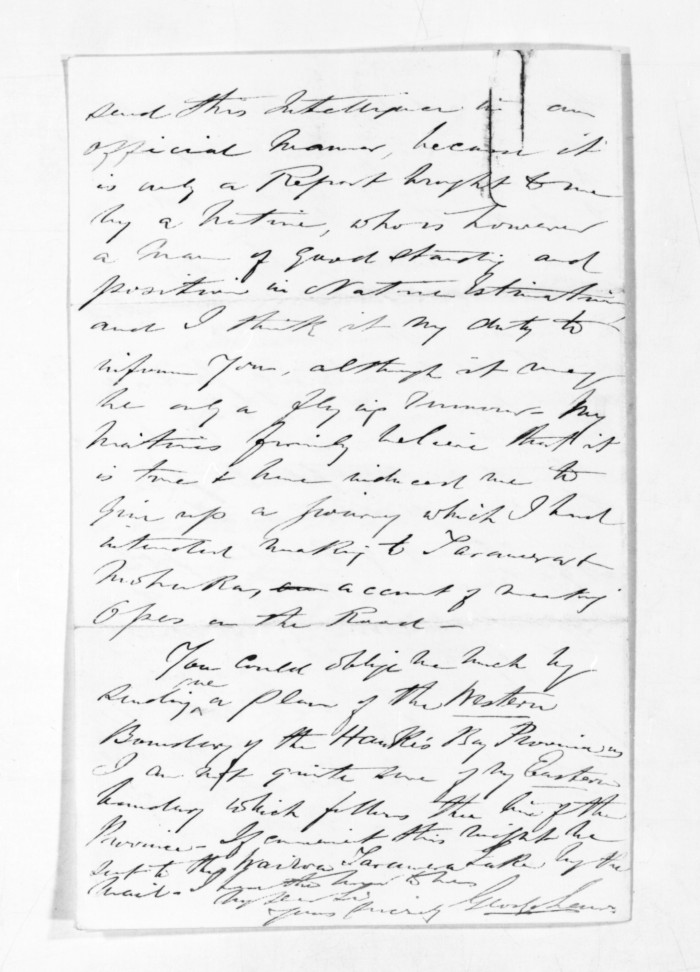 send this Intelligence in an
official manner, because it
is only a Report brought to me
by a Native, who is however
a man of good standing and
position in Native Estimation
and I think it my duty to
inform You, although it may
be only a flying rumour - My
Natives firmly believe that it
is true & have induced me to
give up a journey which I had
intended making to Tarawera &
Mohaka, on account of meeting
Opes on the Road -
You could oblige me much by
sending me a plan of the Western
Boundary of the Hawke's Bay Province, as
I am not quite sure of my Eastern
boundary which follows the line of the
Province - If convenient this might be
sent to the Wairoa Lake by the
mail - I have the honor to be
My dear Sir
Yours sincerely